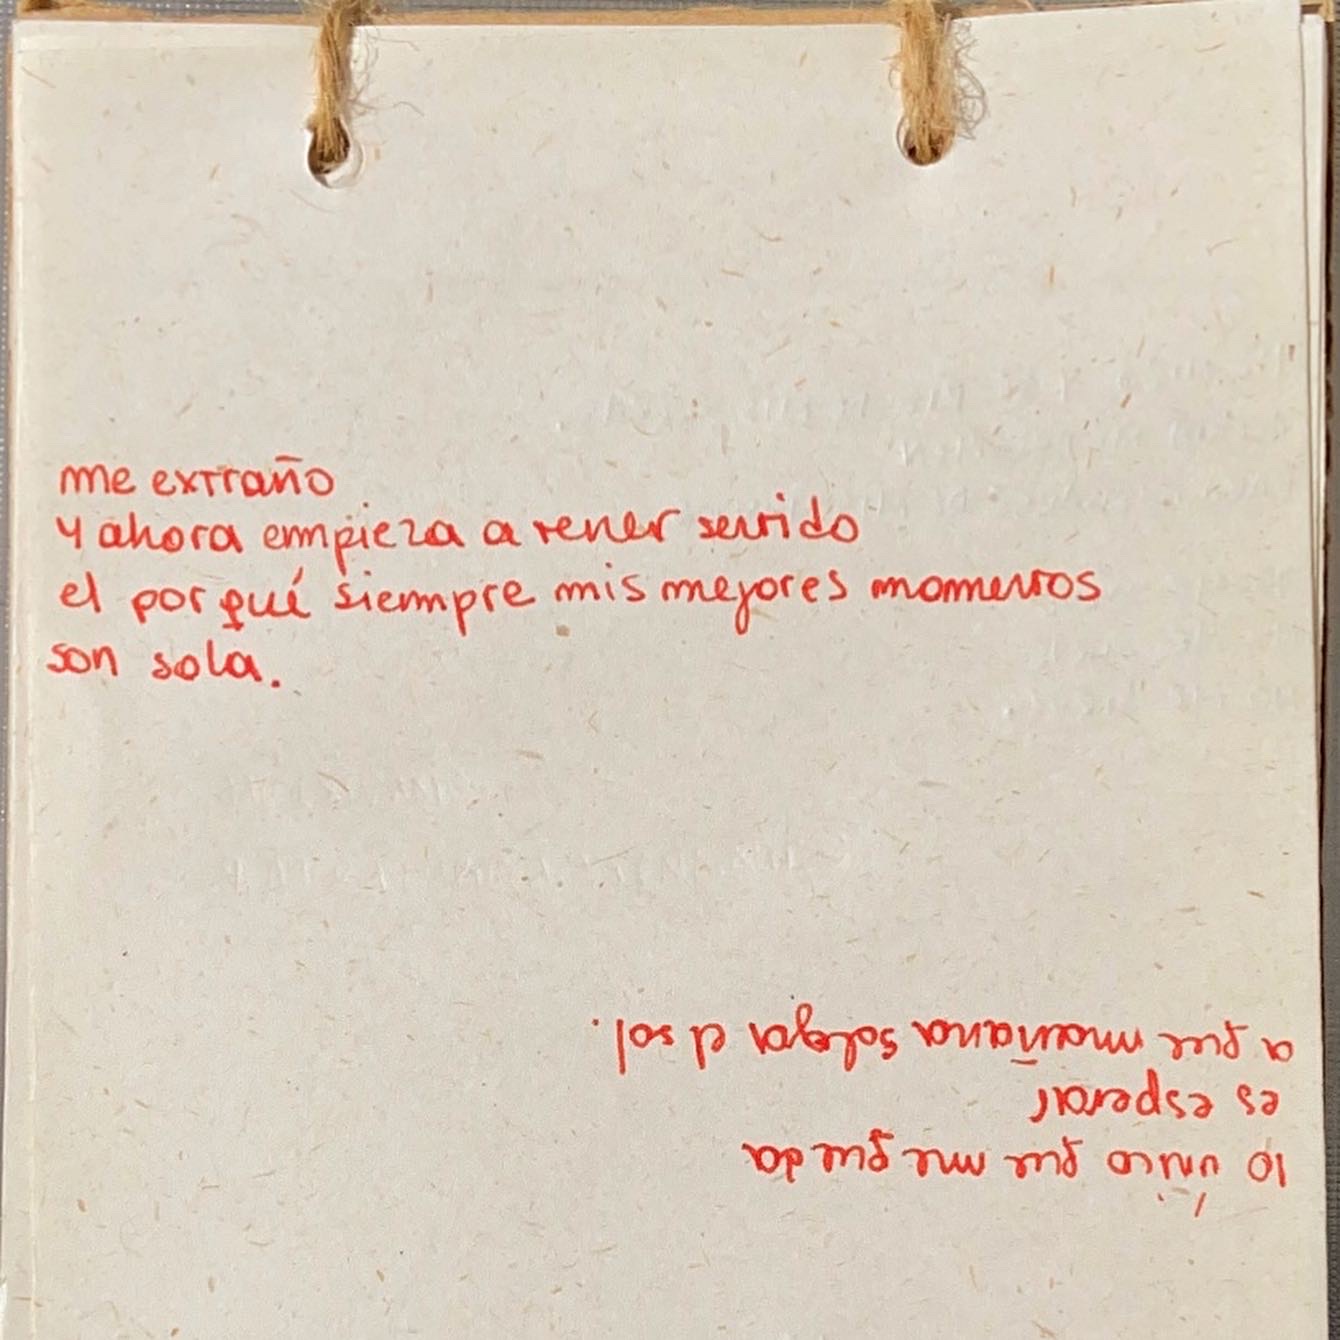 me extraño
y ahora empieza a tener sentido
el por qué siempre mis mejores momentos
son sola.
lo único que me queda
es esperar
a que mañana salga el sol.